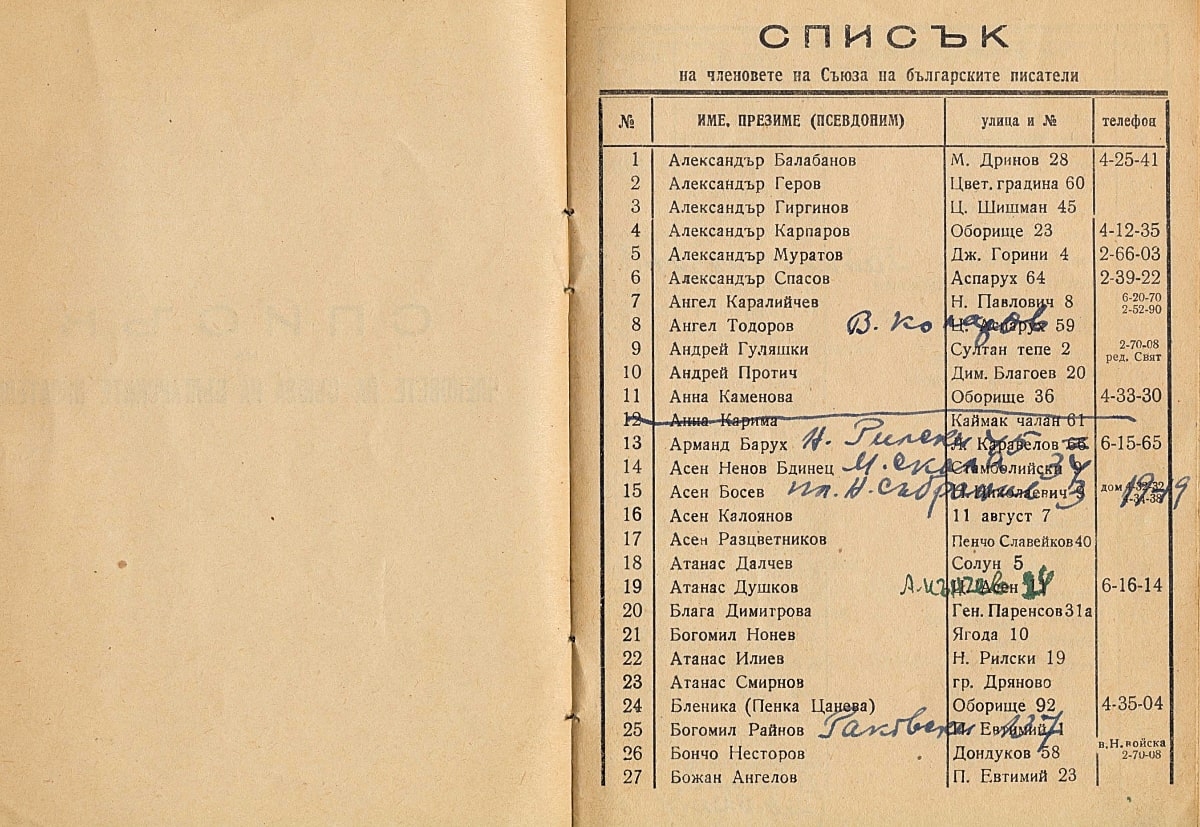 СПИСЪК
на членовете на Съюза на българските писатели
№ ИМЕ, ПРЕЗИМЕ (ПСЕВДОНИМ) улица и № телефон
1 Александър Балабанов М. Дринов 28 4-25-41
2 Александър Геров Цвет. градина 60
3 Александър Гиргинов Ц. Шишман 45
4 Александър Карпаров Оборище 23 4-12-35
5 Александър Муратов Дж. Горини 4 2-66-03
6 Александър Спасов Аспарух 64 2-39-22
7 Ангел Каралийчев Н. Павлович 8 6-20-70 2-52-90
8 Ангел Тодоров В. Коларов Ц. Аспарух 59
9 Андрей Гуляшки Султан тепе 2 2-70-08 ред. Свят
10 Андрей Протич Дим. Благоев 20
11 Анна Каменова Оборище 36 4-33-30
12 Анна Карима Каймак чалан 61
13 Арманд Барух Н. Рилски 75 Караве­лов 66 6-15-65
14 Асен Ненов Бдинец М. Скала 34 Стамболийски
15 Асен Босев пл. Н. Събрание 3 Николаевич 9 дом 4-32-32 4-34-38
16 Асен Калоянов 11 август 7
17 Асен Разцветников Пенчо Славейков 40
18 Атанас Далчев Солун 5
19 Атанас Душков Асен 11 6-16-14
20 Блага Димитрова Ген. Паренсов 31а
21 Богомил Нонев Ягода 10
22 Атанас Илиев Н. Рилски 19
23 Атанас Смирнов гр. Дряново
24 Бленика (Пенка Цанева) Оборище 92 4-35-04
25 Богомил Райнов Раковски 137 П. Евтимий 1
26 Бончо Несторов Дондуков 58 в. Н. войска 2-70-08
27 Божан Ангелов П. Евтимий 23